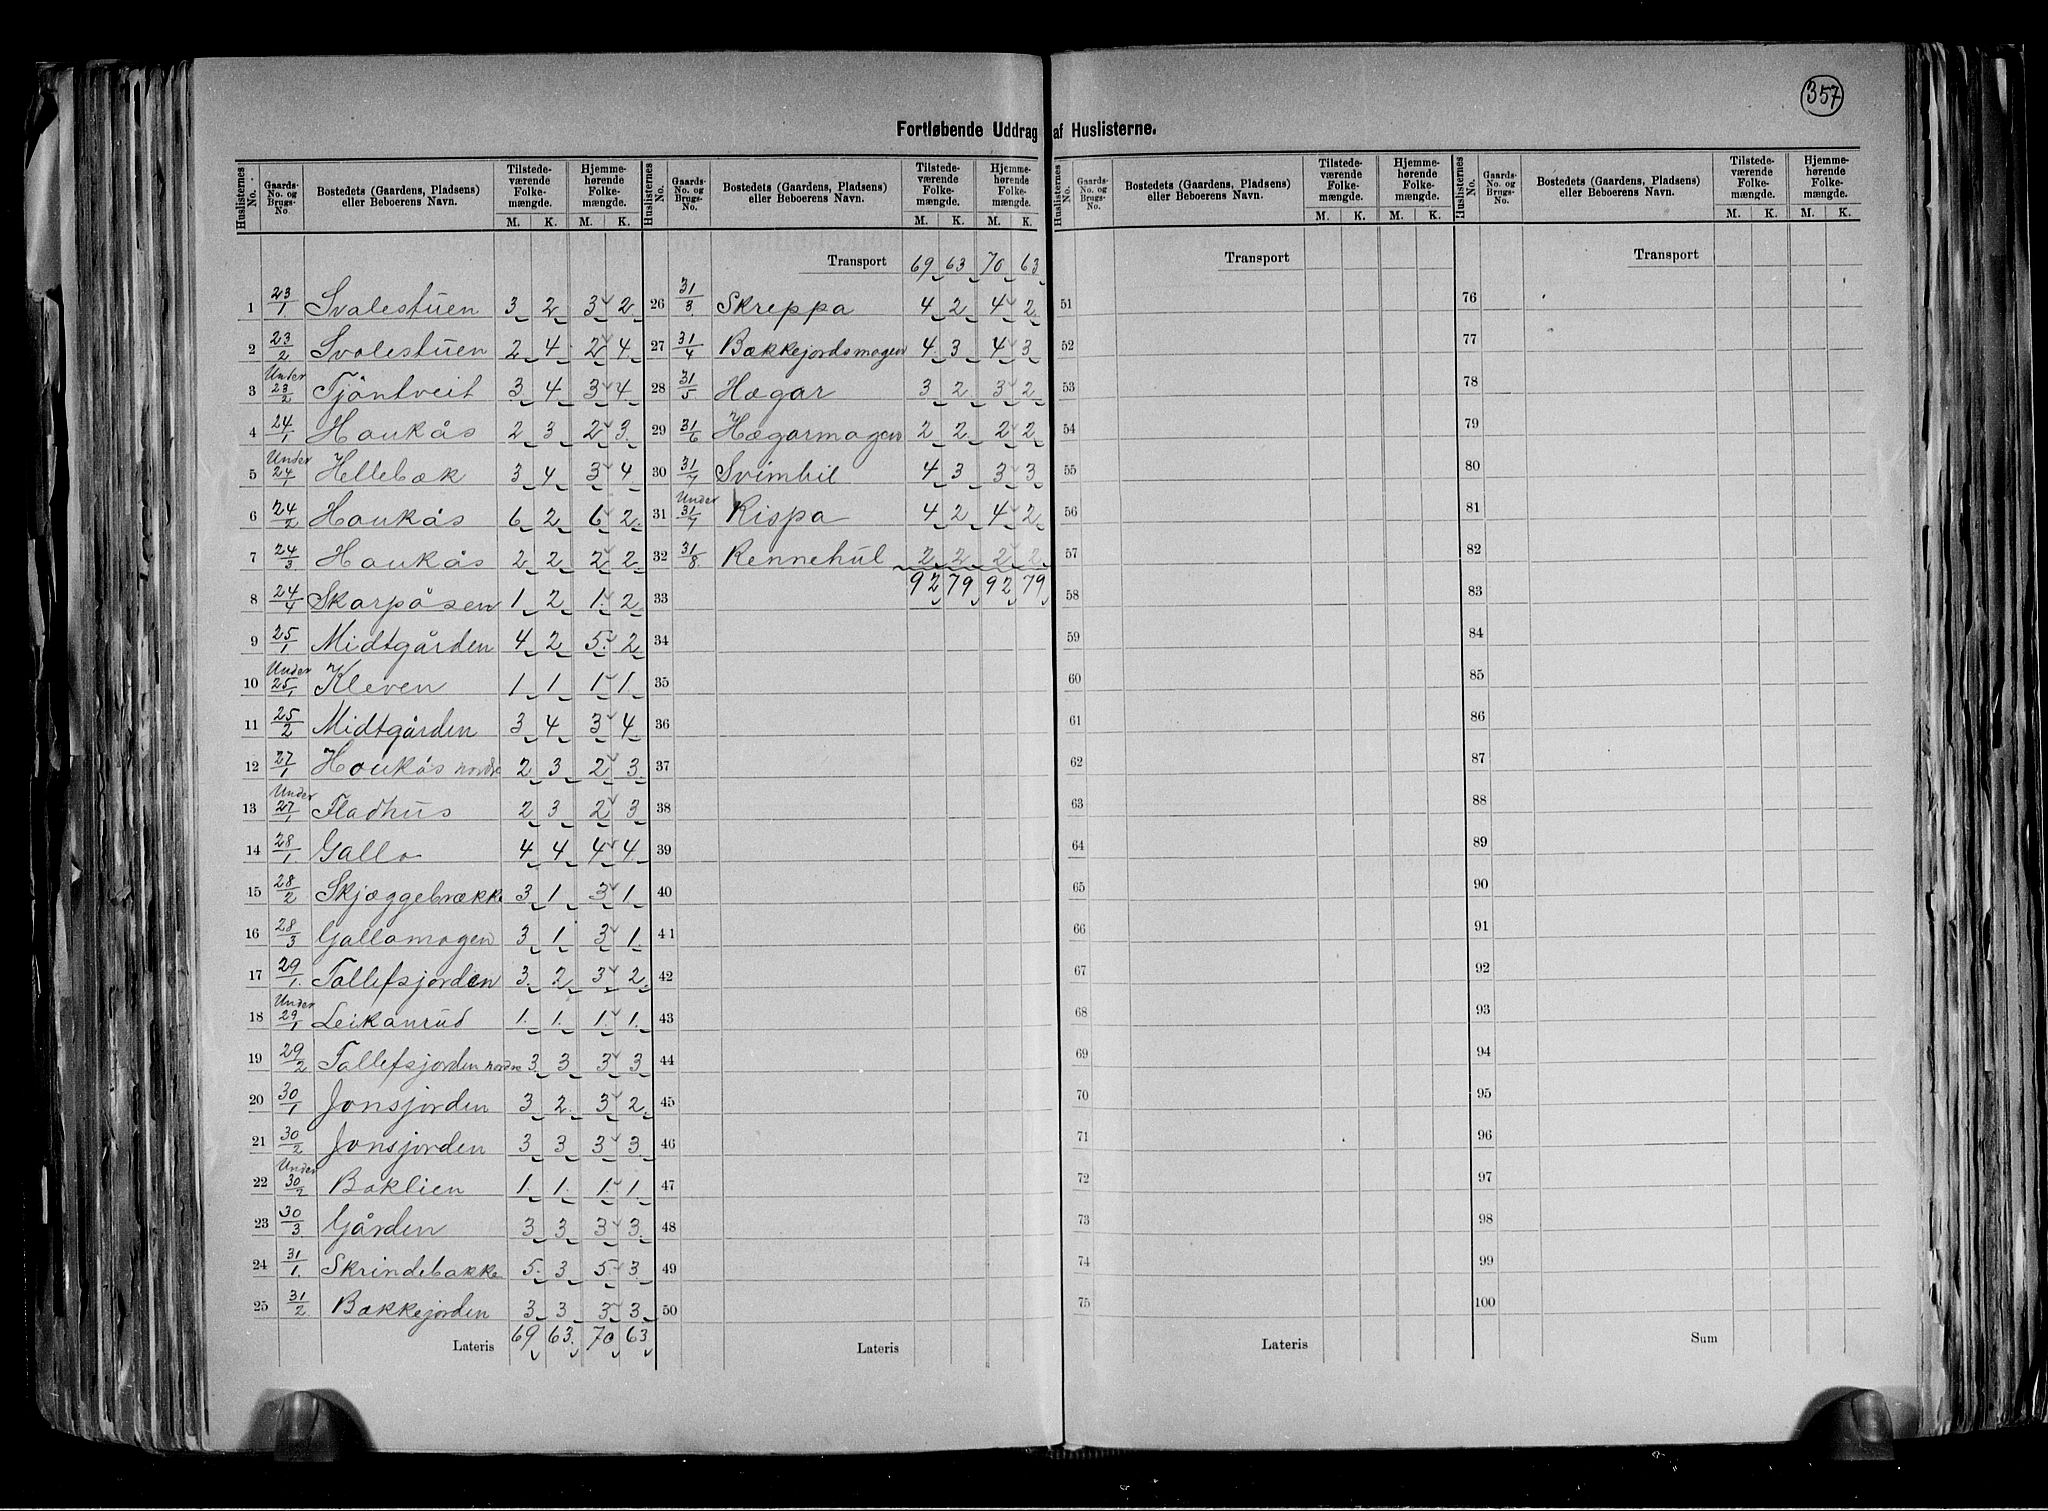 357
Fortløbende Uddrag af Huslisterne.
Huslisternes No. | Gaards-No. og Brugs-No. | Bostedets (Gaardens, Pladsens) eller Beboerens Navn. | Tilstedeværende Folkemængde. M. K. | Hjemmehørende Folkemængde. M. K.
1 23/1 Svalestuen 3 2 3 2
2 23/2 Svalestuen 2 4 2 4
3 Under 23/2 Tjöntveit 3 4 3 4
4 24/1 Haukås 2 3 2 3
5 Under 24/1 Hellebæk 3 4 3 4
6 24/2 Haukås 6 2 6 2
7 24/3 Haukås 2 2 2 2
8 24/4 Skarpåsen 1 2 1 2
9 25/1 Midtgården 4 2 5 2
10 Under 25/1 Kleven 1 1 1 1
11 25/2 Midtgården 3 4 3 4
12 27/1 Haukås nordre 2 3 2 3
13 Under 27/1 Fladhus 2 3 2 3
14 28/1 Galla 4 4 4 4
15 28/2 Skjæggebrække 3 1 3 1
16 28/3 Gallamogen 3 1 3 1
17 29/1 Tallefsjorden 3 2 3 2
18 Under 29/1 Leikanrud 1 1 1 1
19 29/2 Tallefsjorden nordre 3 3 3 3
20 30/1 Jonsjorden 3 2 3 2
21 30/2 Jonsjorden 3 3 3 3
22 Under 30/2 Baklien 1 1 1 1
23 30/3 Gården 3 3 3 3
24 31/1 Skrindebakke 5 3 5 3
25 31/2 Bækkejorden 3 3 3 3
Lateris 69 63 70 63
Huslisternes No. | Gaards-No. og Brugs-No. | Bostedets (Gaardens, Pladsens) eller Beboerens Navn. | Tilstedeværende Folkemængde. M. K. | Hjemmehørende Folkemængde. M. K.
Transport 69 63 70 63
26 31/3 Skreppa 4 2 4 2
27 31/4 Bækkejordsmogen 4 3 4 3
28 31/5 Hægar 3 2 3 2
29 31/6 Hægarmogen 2 2 2 2
30 31/7 Svimbil 4 3 3 3
31 Under 31/7 Rispa 4 2 4 2
32 31/8 Rennehul 2 2 2 2
33 92 79 92 79
34
35
36
37
38
39
40
41
42
43
44
45
46
47
48
49
50
Lateris
Huslisternes No. | Gaards-No. og Brugs-No. | Bostedets (Gaardens, Pladsens) eller Beboerens Navn. | Tilstedeværende Folkemængde. M. K. | Hjemmehørende Folkemængde. M. K.
Transport
51
52
53
54
55
56
57
58
59
60
61
62
63
64
65
66
67
68
69
70
71
72
73
74
75
Lateris
Huslisternes No. | Gaards-No. og Brugs-No. | Bostedets (Gaardens, Pladsens) eller Beboerens Navn. | Tilstedeværende Folkemængde. M. K. | Hjemmehørende Folkemængde. M. K.
Transport
76
77
78
79
80
81
82
83
84
85
86
87
88
89
90
91
92
93
94
95
96
97
98
99
100
Sum